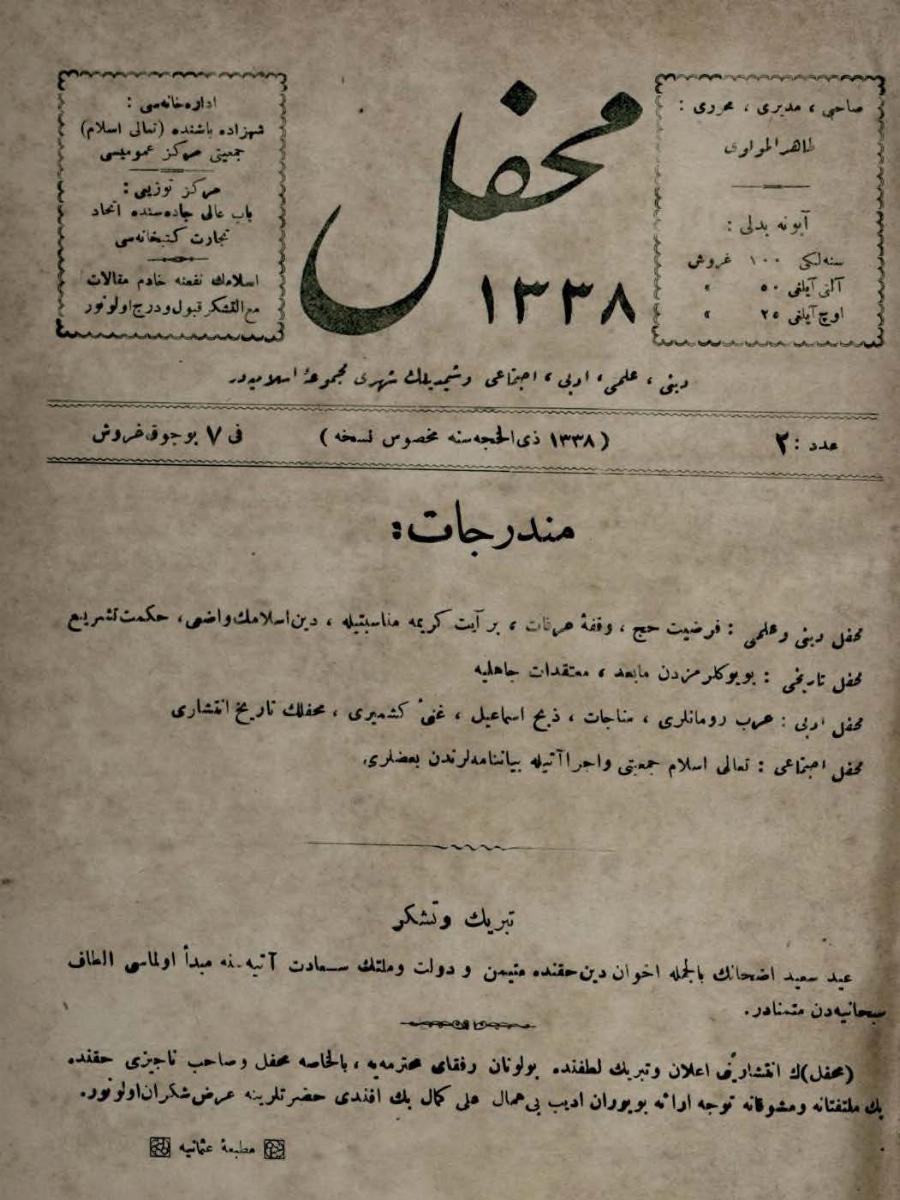 صاحبی ، مدیری ، محرری :
طاهر المولوی
آبونه بدلی :
سنه‌لکی ١٠٠ غروش
آلتی آیلغی ٥٠ »
اوچ آیلغی ٢٥ »
محفل
١٣٣٨
اداره‌خانه‌سی :
شهزاده باشنده (تعالی اسلام)
جمعیتی مرکز عمومیسی
مرکز توزیعی :
باب عالی جاده‌سنده اتحاد
تجارت کتبخانه‌سی
اسلامك نفعنه خادم مقالات
مع‌التشکر قبول و درج اولونور
دینی ، علمی ، ادبی ، اجتماعی وشیمدیلك شهری مجموعهٔ اسلامیه‌در
عدد : ٢
( ١٣٣٨ ذی‌الحجه‌سنه مخصوص نسخه )
فی ٧ بوجوق غروش
مندرجات :
محفل دینی وعلمی : فرضیت حج ، وقفهٔ عرفات ، بر آیت کریمه مناسبتیله ، دین اسلامك واضعی ، حکمت تشریع
محفل تاریخی : بویوکلرمزدن مابعد ، معتقدات جاهلیه
محفل ادبی : عرب رومانلری ، مناجات ، ذبح اسماعیل ، غنیٔ کشمیری ، محفلك تاریخ انتشاری
محفل اجتماعی : تعالی اسلام جمعیتی واجراآتیله بیاننامه‌لرندن بعضلری
تبریك وتشکر
عید سعید اضحانك بالجمله اخوان دین حقنده متیمن و دولت وملتك سعادت آتیه‌سنه مبدأ اولماسی الطاف
سبحانیه‌دن متمنادر.
(محفل)ك انتشارینی اعلان وتبریك لطفنده بولونان رفقای محترمه‌یه ، بالخاصه محفل وصاحب ناچیزی حقنده
پك ملتفتانه ومشوقانه توجه ارائه بویوران ادیب بی‌همال علی کمال بك افندی حضرتلرینه عرض شکران اولونور.
مطبعهٔ عثمانیه